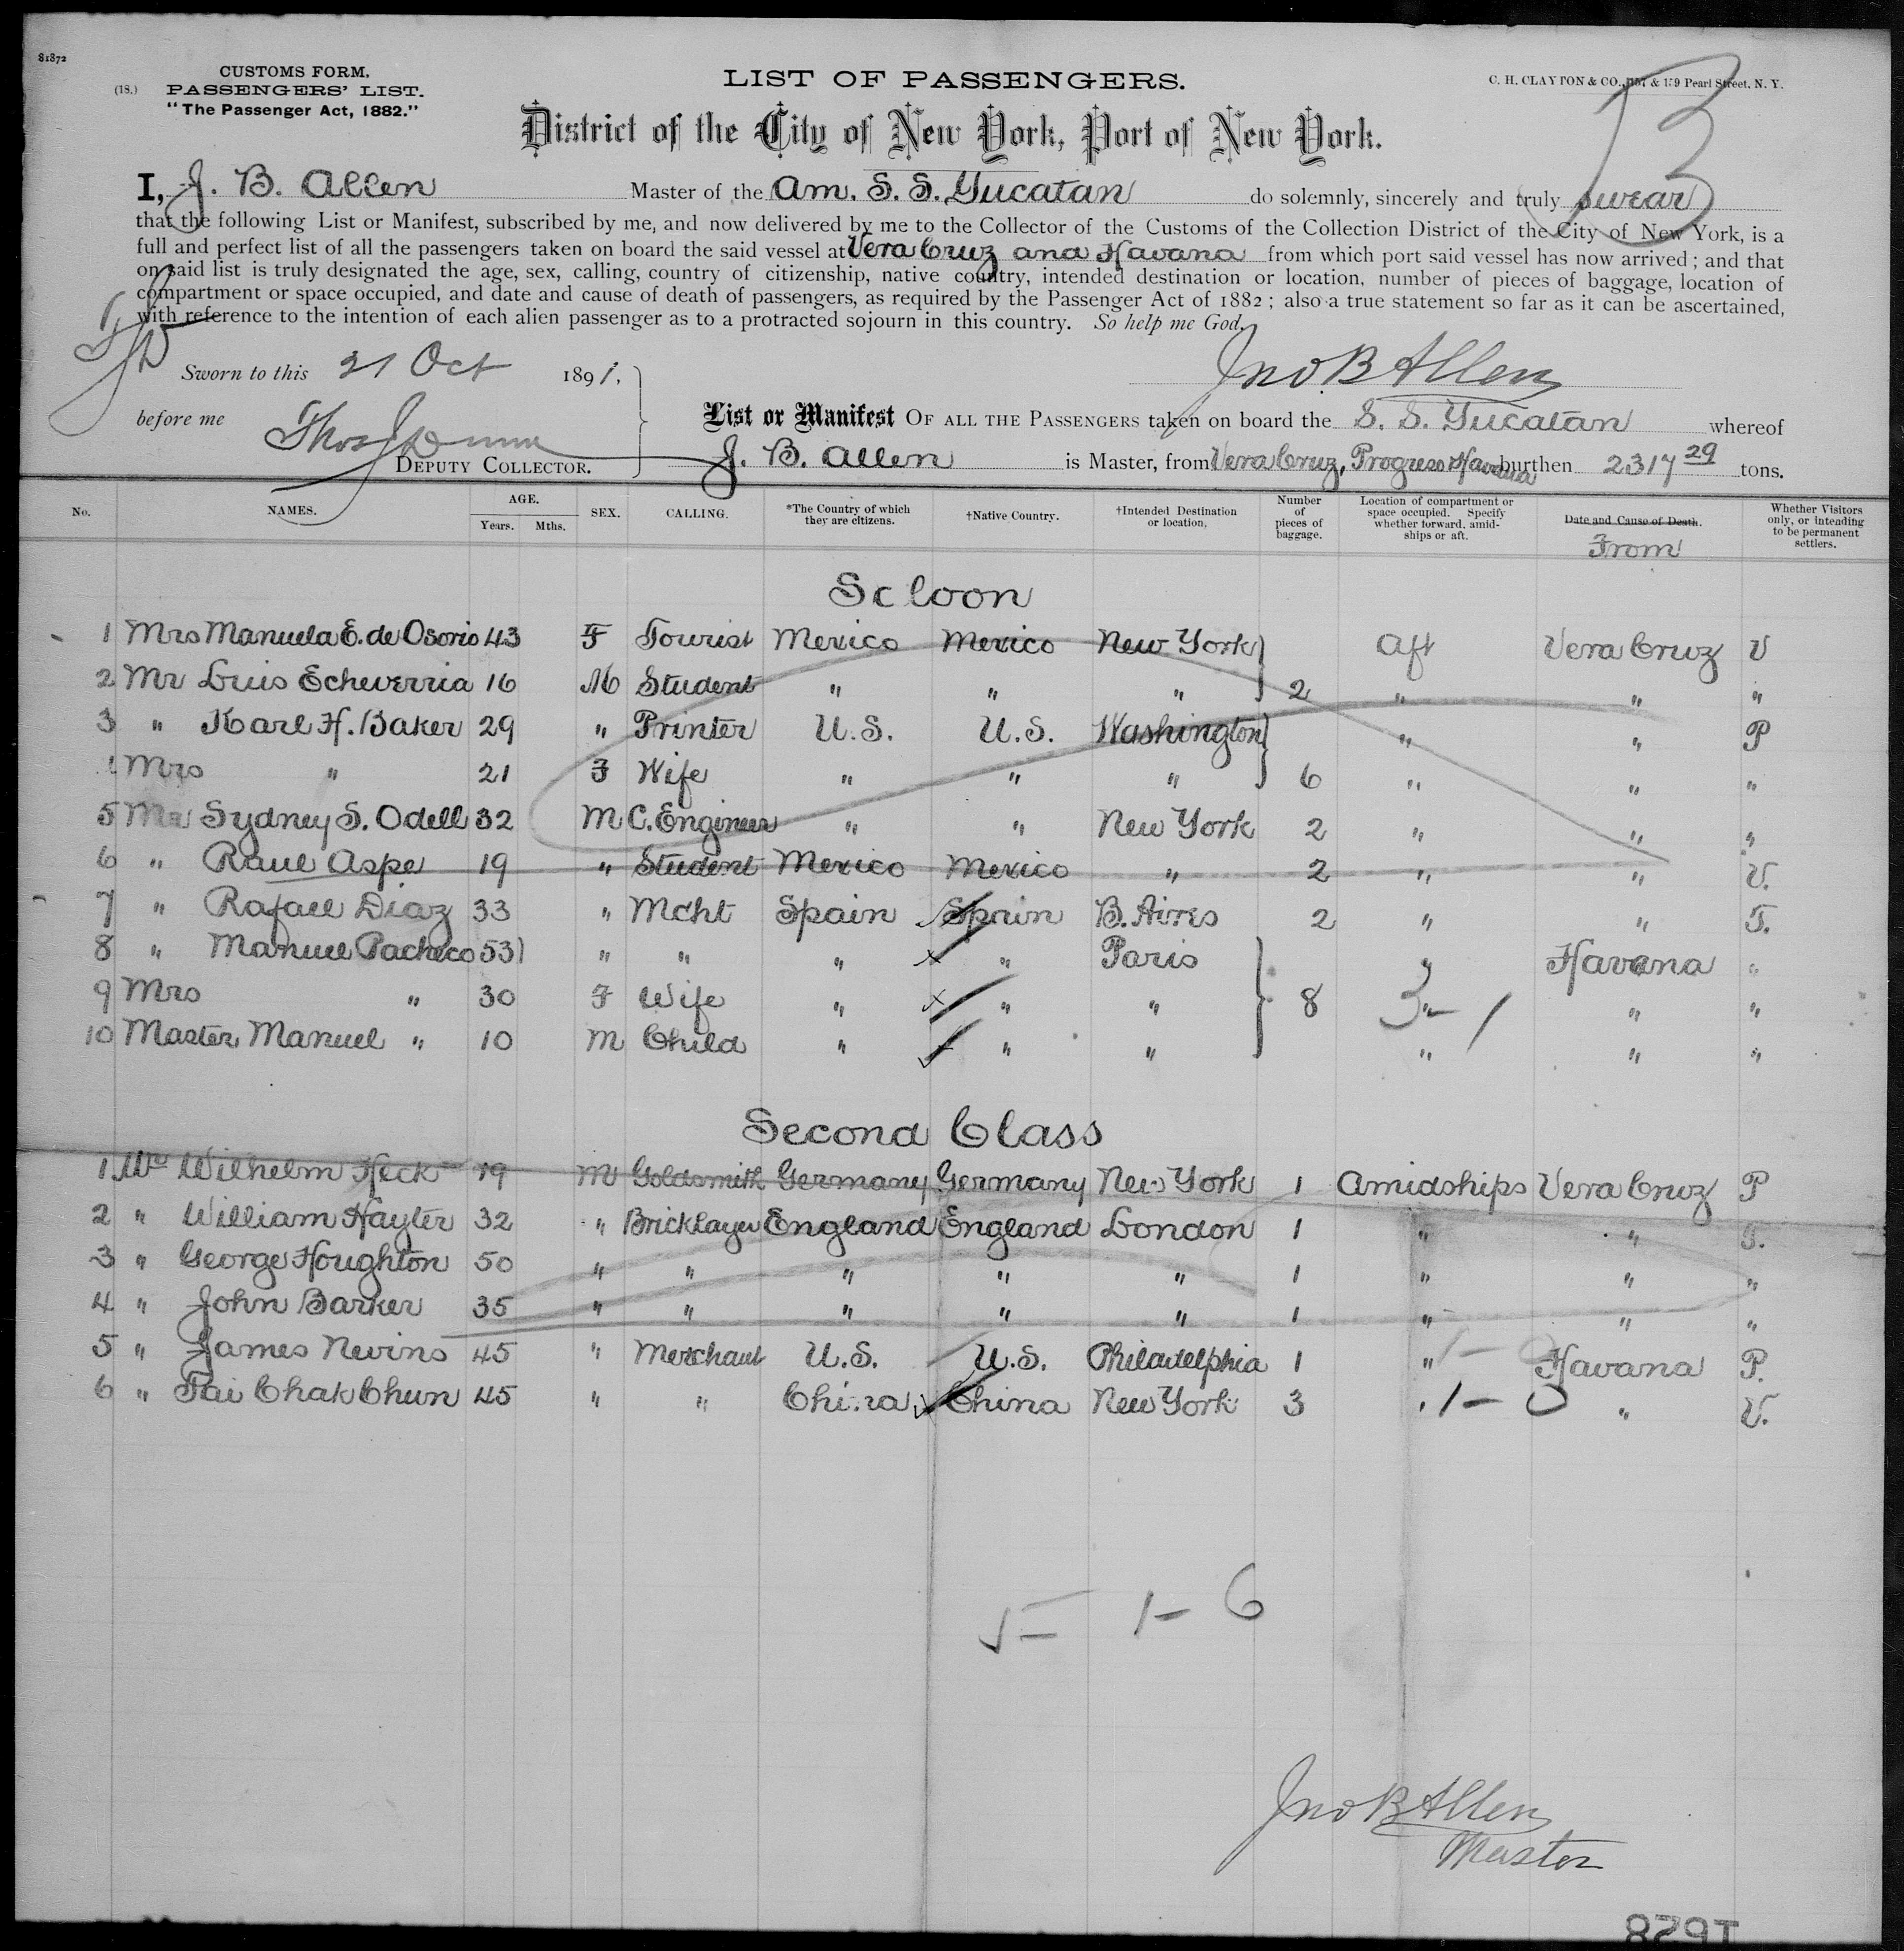 81872
CUSTOMS FORM.
(18.) PASSENGERS' LIST.
"The Passenger Act, 1882."
LIST OF PASSENGERS.
C. H. CLAYTON & CO., 157 & 159 Pearl Street, N. Y.
13
District of the City of New York, Port of New York.
I, J. B. Allen Master of the Am. S. S. Yucatan do solemnly, sincerely and truly swear
that the following List or Manifest, subscribed by me, and now delivered by me to the Collector of the Customs of the Collection District of the City of New York, is a
full and perfect list of all the passengers taken on board the said vessel at Vera Cruz and Havana from which port said vessel has now arrived; and that
on said list is truly designated the age, sex, calling, country of citizenship, native country, intended destination or location, number of pieces of baggage, location of
compartment or space occupied, and date and cause of death of passengers, as required by the Passenger Act of 1882; also a true statement so far as it can be ascertained,
with reference to the intention of each alien passenger as to a protracted sojourn in this country. So help me God.
Sworn to this 21 Oct 1891.
Jno. B Allen
before me Thos J Dunn
DEPUTY COLLECTOR.
List or Manifest OF ALL THE PASSENGERS taken on board the S. S. Yucatan whereof
J. B. Allen is Master, from Vera Cruz, Progreso Havana burthen 2317 29 tons.
No. NAMES. AGE. Years. Mths. SEX. CALLING. *The Country of which they are citizens. †Native Country. †Intended Destination or location. Number of pieces of baggage. Location of compartment or space occupied. Specify whether forward, amidships or aft. Date and Cause of Death. From Whether Visitors only, or intending to be permanent settlers.
Saloon
1 Mrs Manuela E. de Osorio 43 F Tourist Mexico Mexico New York Aft Vera Cruz V
2 Mr Luis Echeverria 16 M Student " " " 2 " " "
3 " Karl H. Baker 29 " Printer U.S. U.S. Washington " " P
4 Mrs " 21 F Wife " " " 6 " " "
5 Mr Sydney S. Odell 32 M C. Engineer " " New York 2 " " "
6 " Raul Aspe 19 " Student Mexico Mexico " 2 " " V.
7 " Rafael Diaz 33 " Mcht Spain Spain B. Aires 2 " " T.
8 " Manuel Pacheco 53 " " " " Paris " Havana "
9 Mrs " 30 F Wife " " " 8 " " "
10 Master Manuel " 10 M Child " " " " " "
3 - 1
Second Class
1 Mr Wilhelm Heck 19 M Goldsmith Germany Germany New York 1 Amidships Vera Cruz P
2 " William Hayter 32 " Bricklayer England England London 1 " " T.
3 " George Houghton 50 " " " " " 1 " " "
4 " John Barker 35 " " " " " 1 " " "
5 " James Nevins 45 " Merchant U.S. U.S. Philadelphia 1 " Havana P.
6 " Tai Chak Chun 45 " " China China New York 3 1 - 0 " V.
1 - 6
Jno B Allen
Master
1628